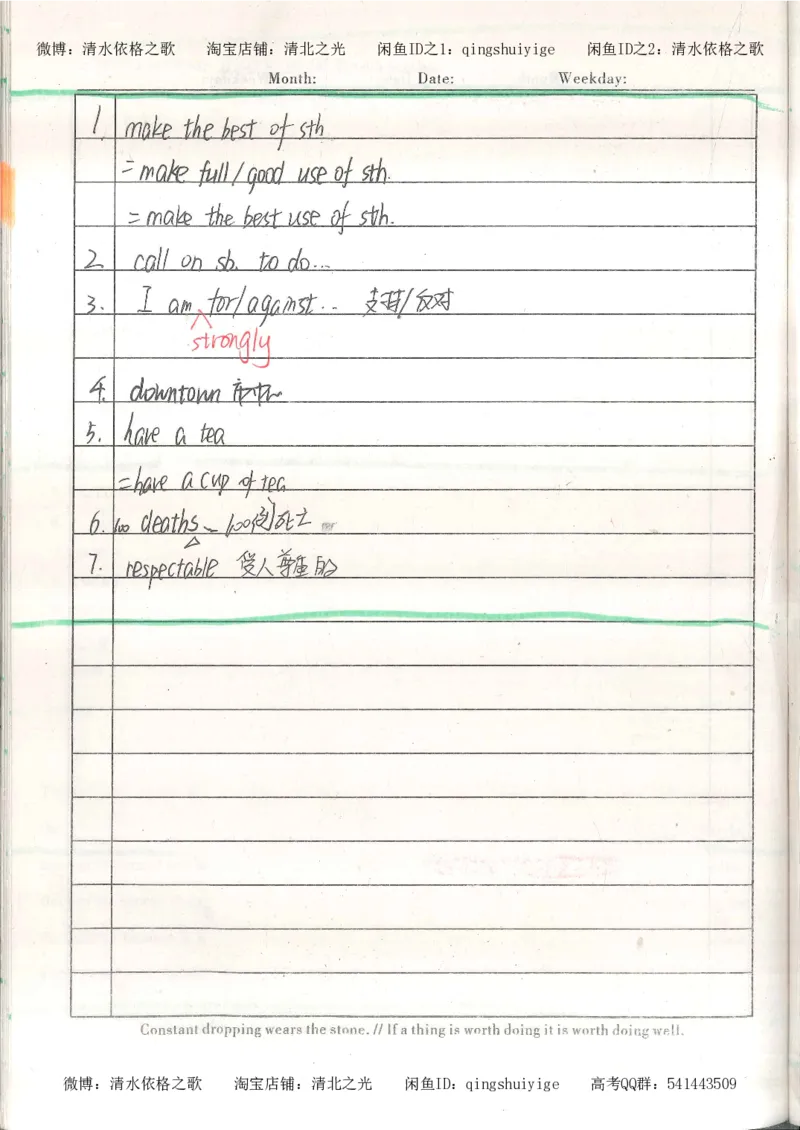 微博：清水依格之歌 淘宝店铺：清北之光 闲鱼ID之1：qingshuiyige 闲鱼ID之2：清水依格之歌
Month: Date: Weekday:
1. make the best of sth
= make full/good use of sth.
= make the best use of sth.
2. call on sb. to do...
3. I am for/against... 支持/反对
strongly
4. downtown 市中心
5. have a tea
= have a cup of tea
6. 100 deaths 100例死亡
7. respectable 受人尊重的
Constant dropping wears the stone. // If a thing is worth doing it is worth doing well.
微博：清水依格之歌 淘宝店铺：清北之光 闲鱼ID：qingshuiyige 高考QQ群：541443509